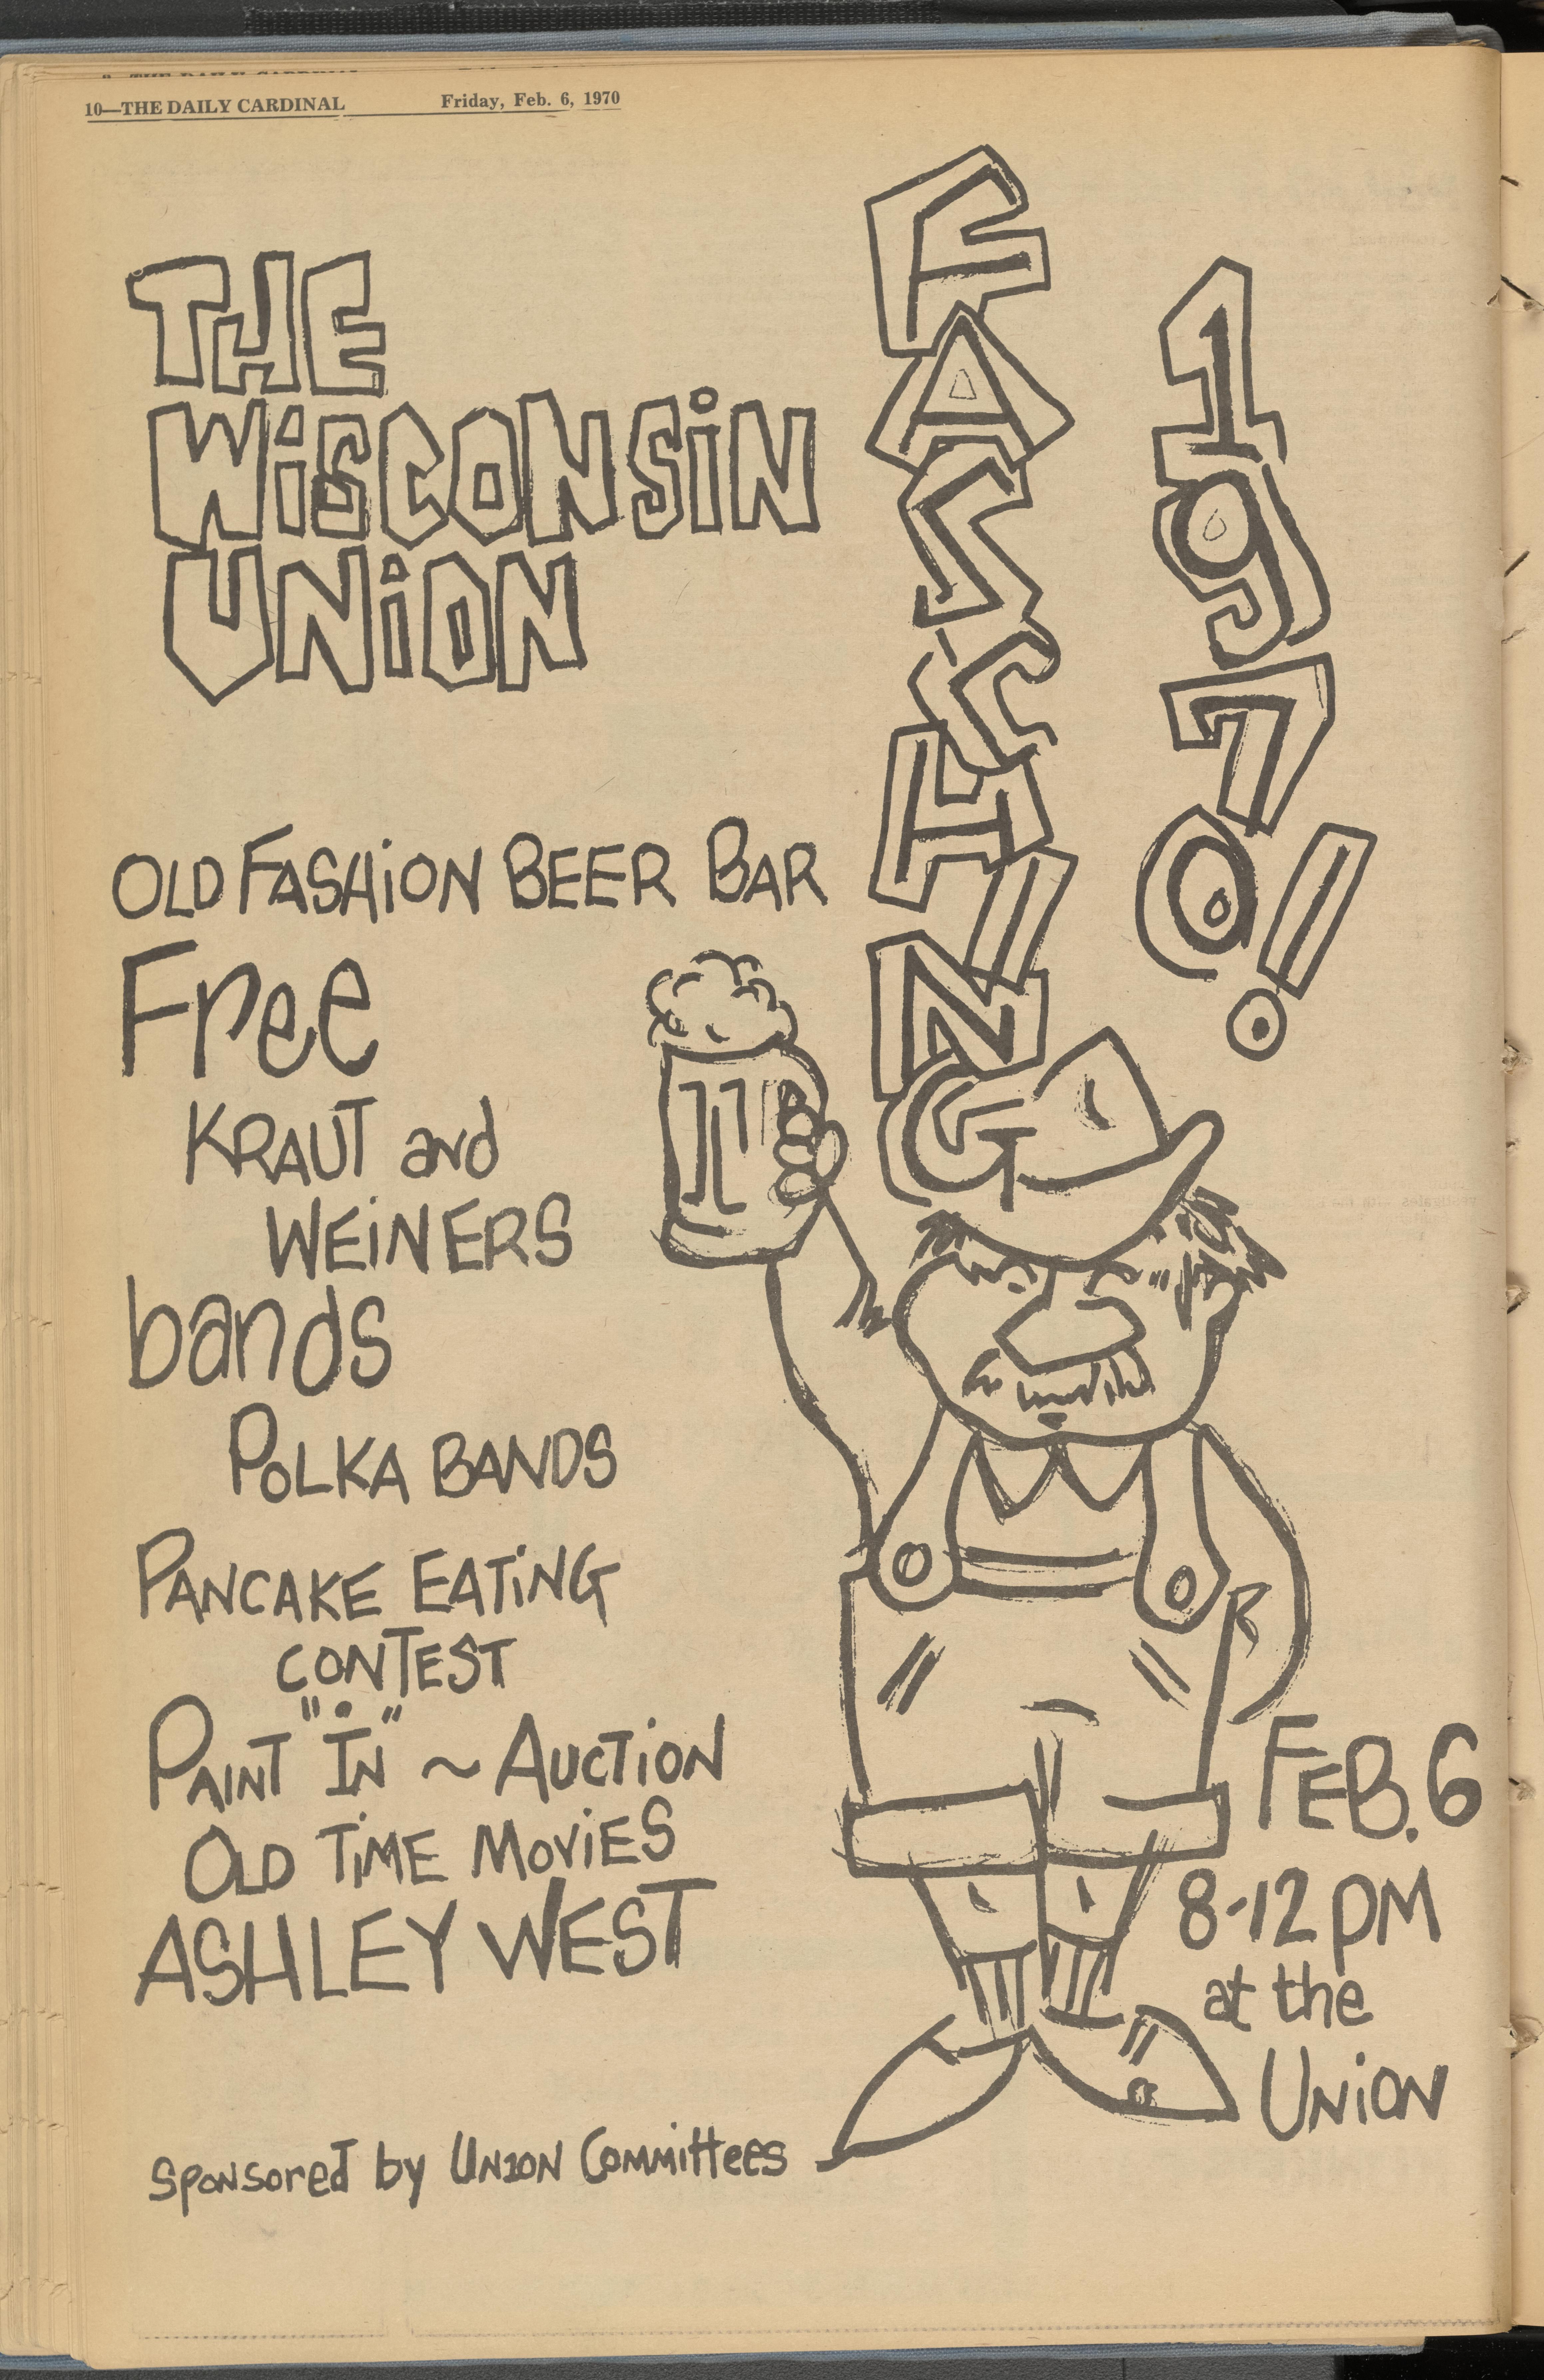 10—THE DAILY CARDINAL Friday, Feb. 6, 1970
THE
WiSCONSiN
UNiON
FASCHING
1970!
OLD FASHiON BEER BAR
Free
KRAUT and
WEiNERS
bands
POLKA BANDS
PANCAKE EATiNG
CONTEST
PAINT "IN" ~ AUCTiON
OLD TiME MOViES
ASHLEY WEST
FEB. 6
8-12 PM
at the
UNiON
Sponsored by UNION Committees